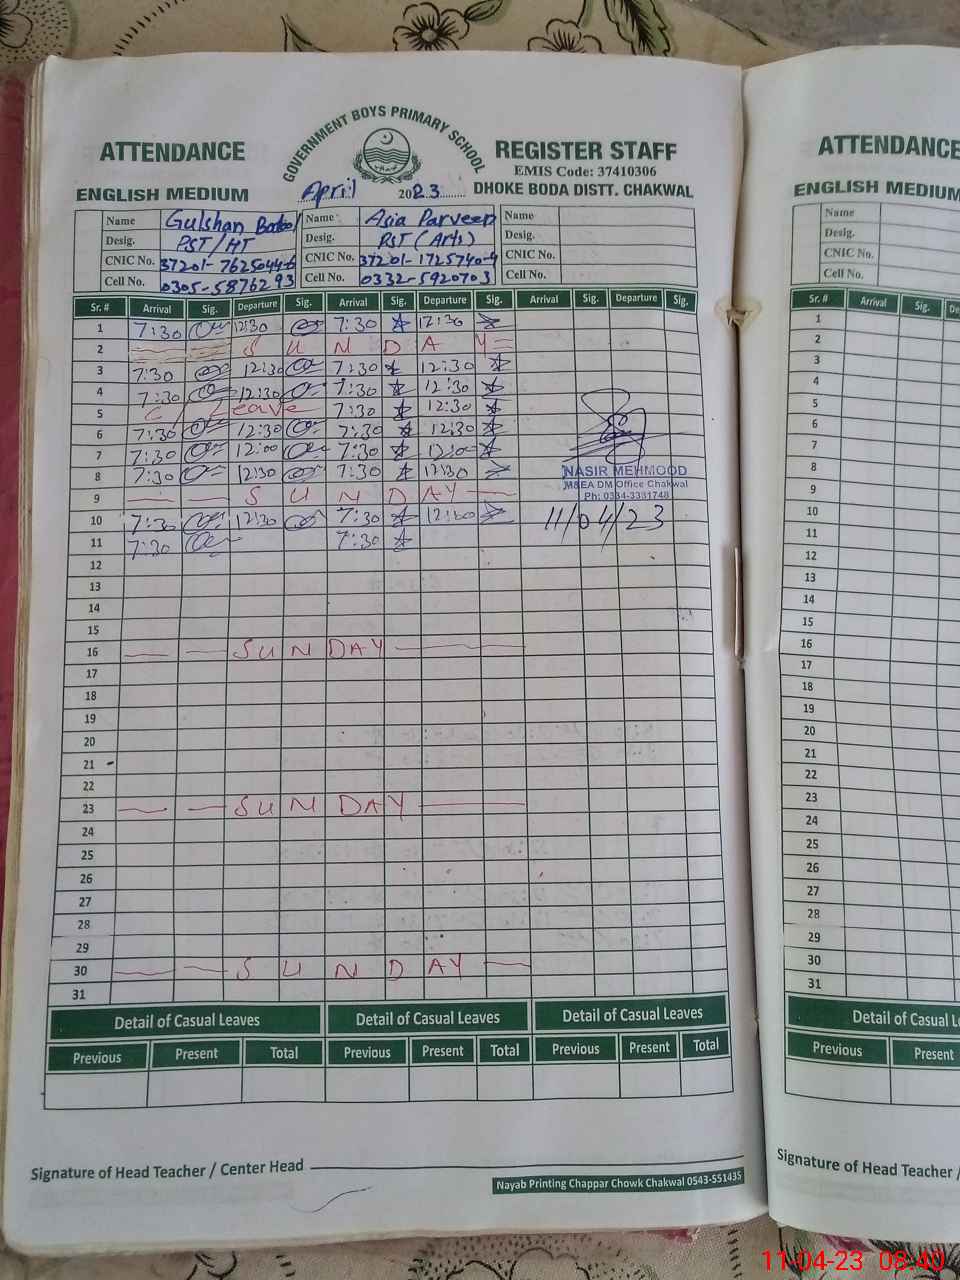 GOVERNMENT BOYS PRIMARY SCHOOL
ATTENDANCE REGISTER STAFF
EMIS Code: 37410306
ENGLISH MEDIUM April 2023 DHOKE BODA DISTT. CHAKWAL
Name Gulshan Name Asia Parveen Name
Desig. PST/HT Desig. PST (Arts) Desig.
CNIC No. 37201-7625044-6 CNIC No. 37201-1725740-4 CNIC No.
Cell No. 0305-5876293 Cell No. 0332-5920703 Cell No.
Sr. # Arrival Sig. Departure Sig. Arrival Sig. Departure Sig. Arrival Sig. Departure Sig.
1 7:30 12:30 7:30 12:30
2 SUNDAY
3 7:30 12:30 7:30 12:30
4 7:30 12:30 7:30 12:30
5 C/Leave 7:30 12:30
6 7:30 12:30 7:30 12:30
7 7:30 12:00 7:30 12:00
8 7:30 12:30 7:30 12:30
NASIR MEHMOOD
M&EA DM Office Chakwal
Ph: 0334-3331748
9 SUNDAY
10 7:30 12:30 7:30 11/04/23
11 7:30 7:30
12
13
14
15
16 SUNDAY
17
18
19
20
21
22
23 SUNDAY
24
25
26
27
28
29
30 SUNDAY
31
Detail of Casual Leaves Detail of Casual Leaves Detail of Casual Leaves
Previous Present Total Previous Present Total Previous Present Total
Signature of Head Teacher / Center Head
Nayab Printing Chappar Chowk Chakwal 0543-551435
ATTENDANCE
ENGLISH MEDIUM
Name
Desig.
CNIC No.
Cell No.
Sr. # Arrival Sig.
1
2
3
4
5
6
7
8
9
10
11
12
13
14
15
16
17
18
19
20
21
22
23
24
25
26
27
28
29
30
31
Detail of Casual
Previous Present
Signature of Head Teacher /
11-04-23 08:40